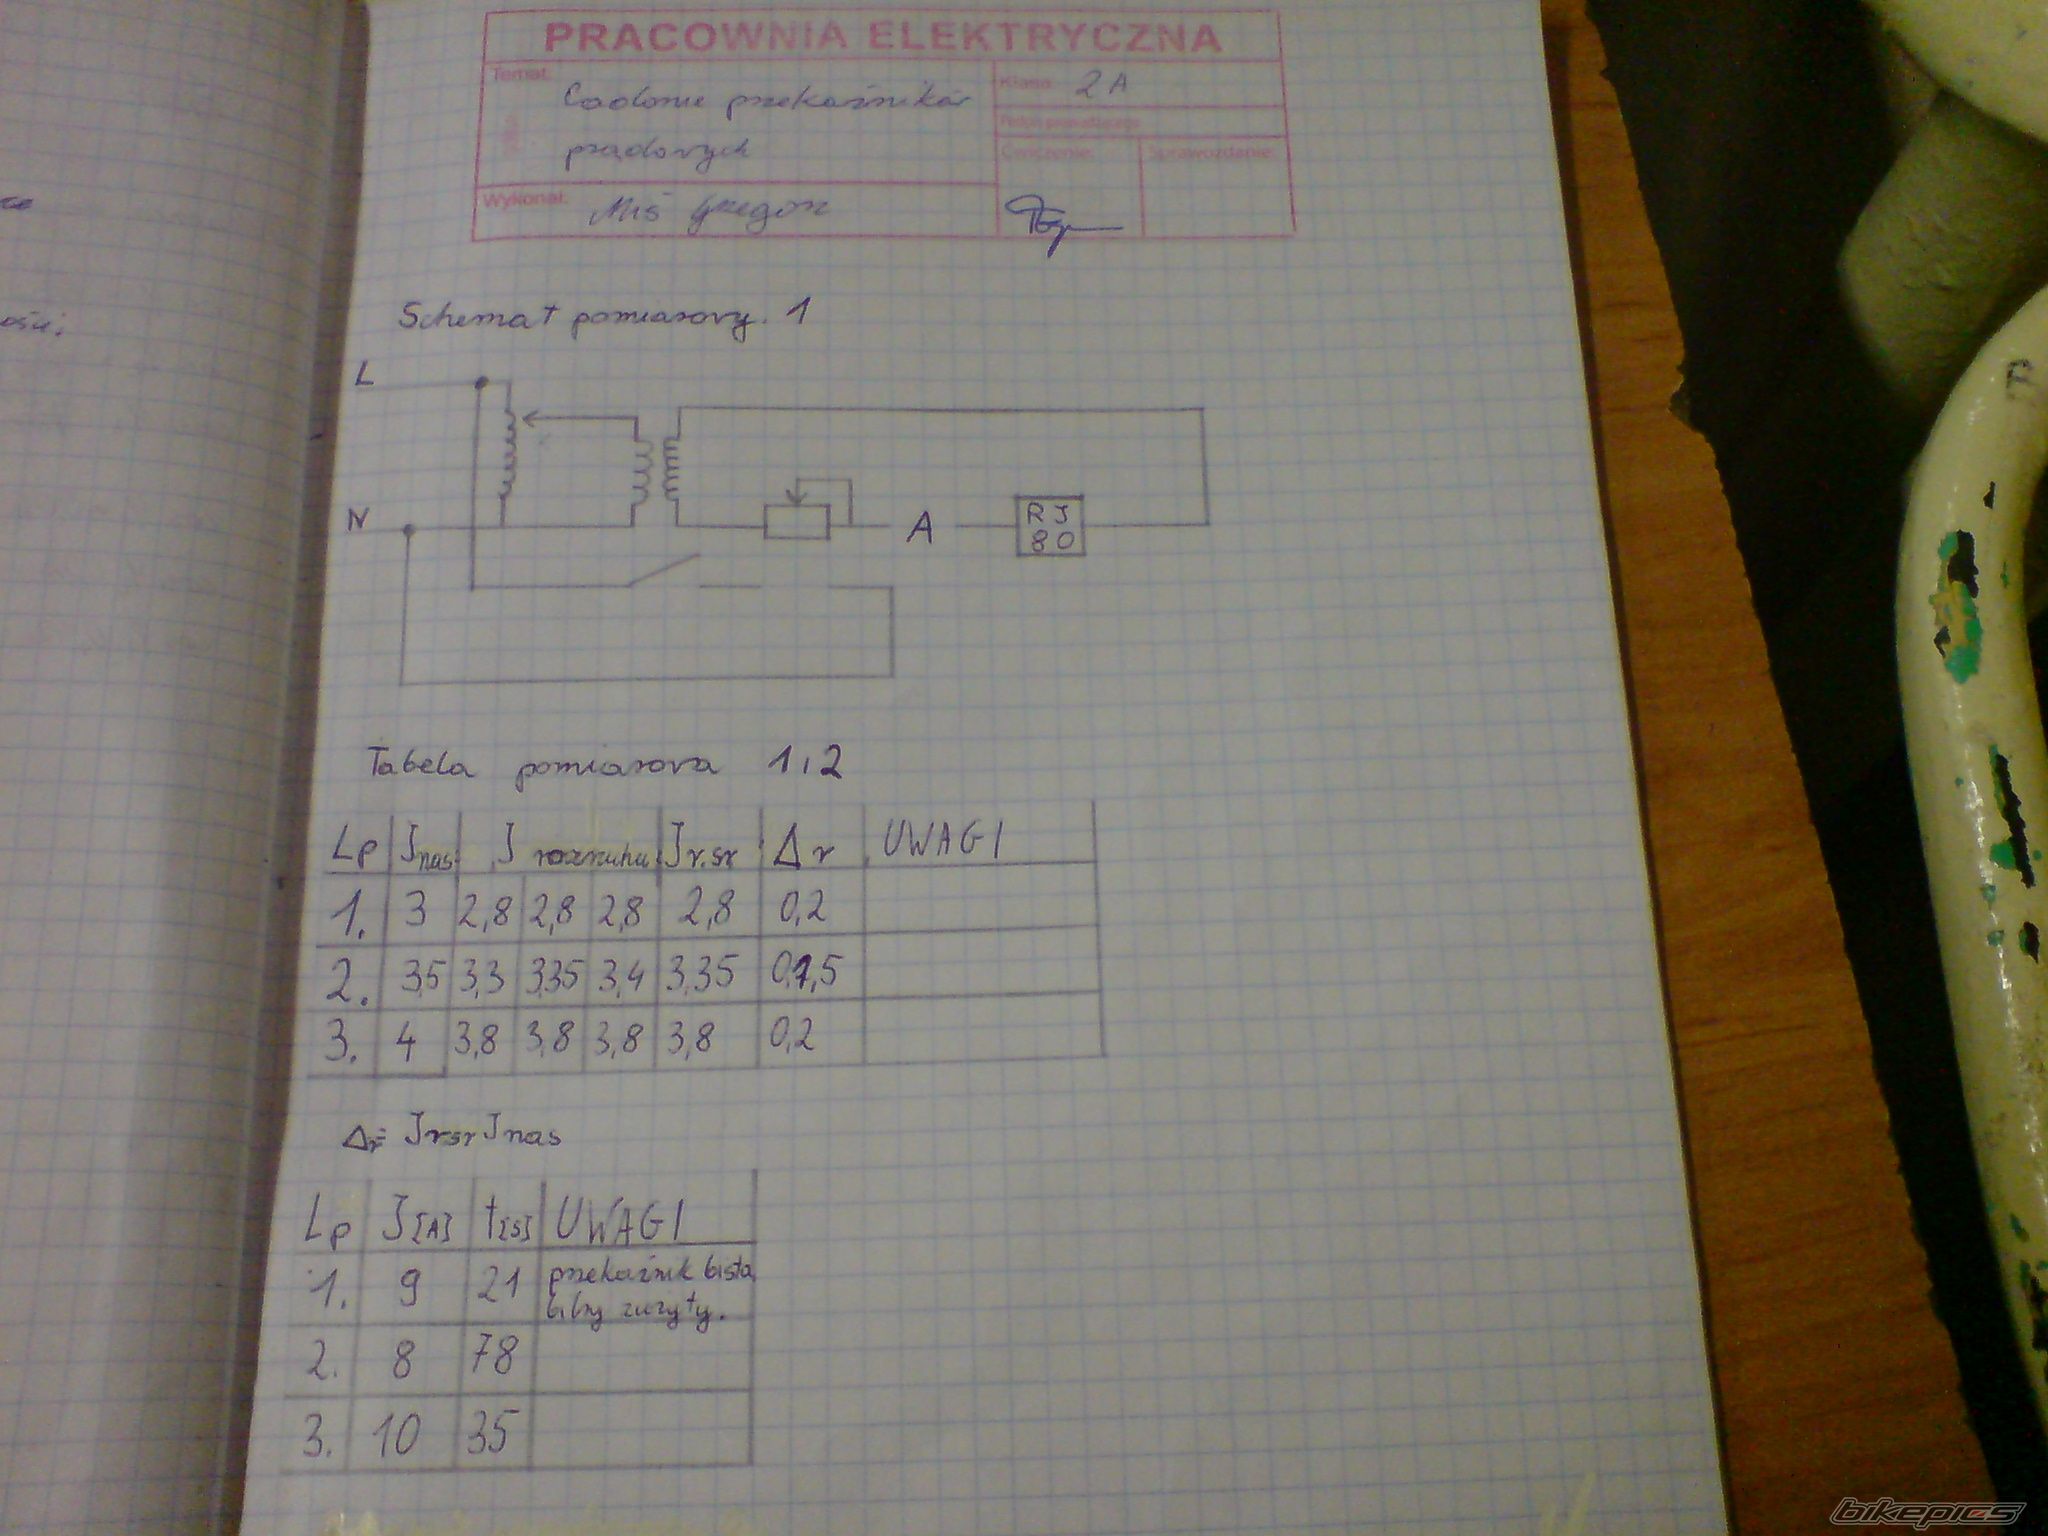 PRACOWNIA ELEKTRYCZNA
Temat:
Cadanie przekaźników
prądowych
Klasa: 2A
Ćwiczenie:
Sprawozdanie:
Wykonał:
Miś Grzegorz
Schemat pomiarowy. 1
L
N
A
RJ
80
Tabela pomiarowa 1,2
Lp Jnas J rozruhu Jr.sr Δr UWAGI
1. 3 2,8 2,8 2,8 2,8 0,2
2. 3,5 3,3 3,35 3,4 3,35 0,1,5
3. 4 3,8 3,8 3,8 3,8 0,2
Δr= Jrsr Jnas
Lp J[A] t[s] UWAGI
1. 9 21 przekaźnik bista
bilny zużyty.
2. 8 78
3. 10 35
bikepics